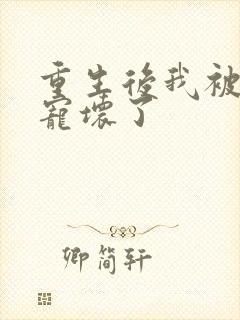 重生後我被
寵壞了
卿简轩